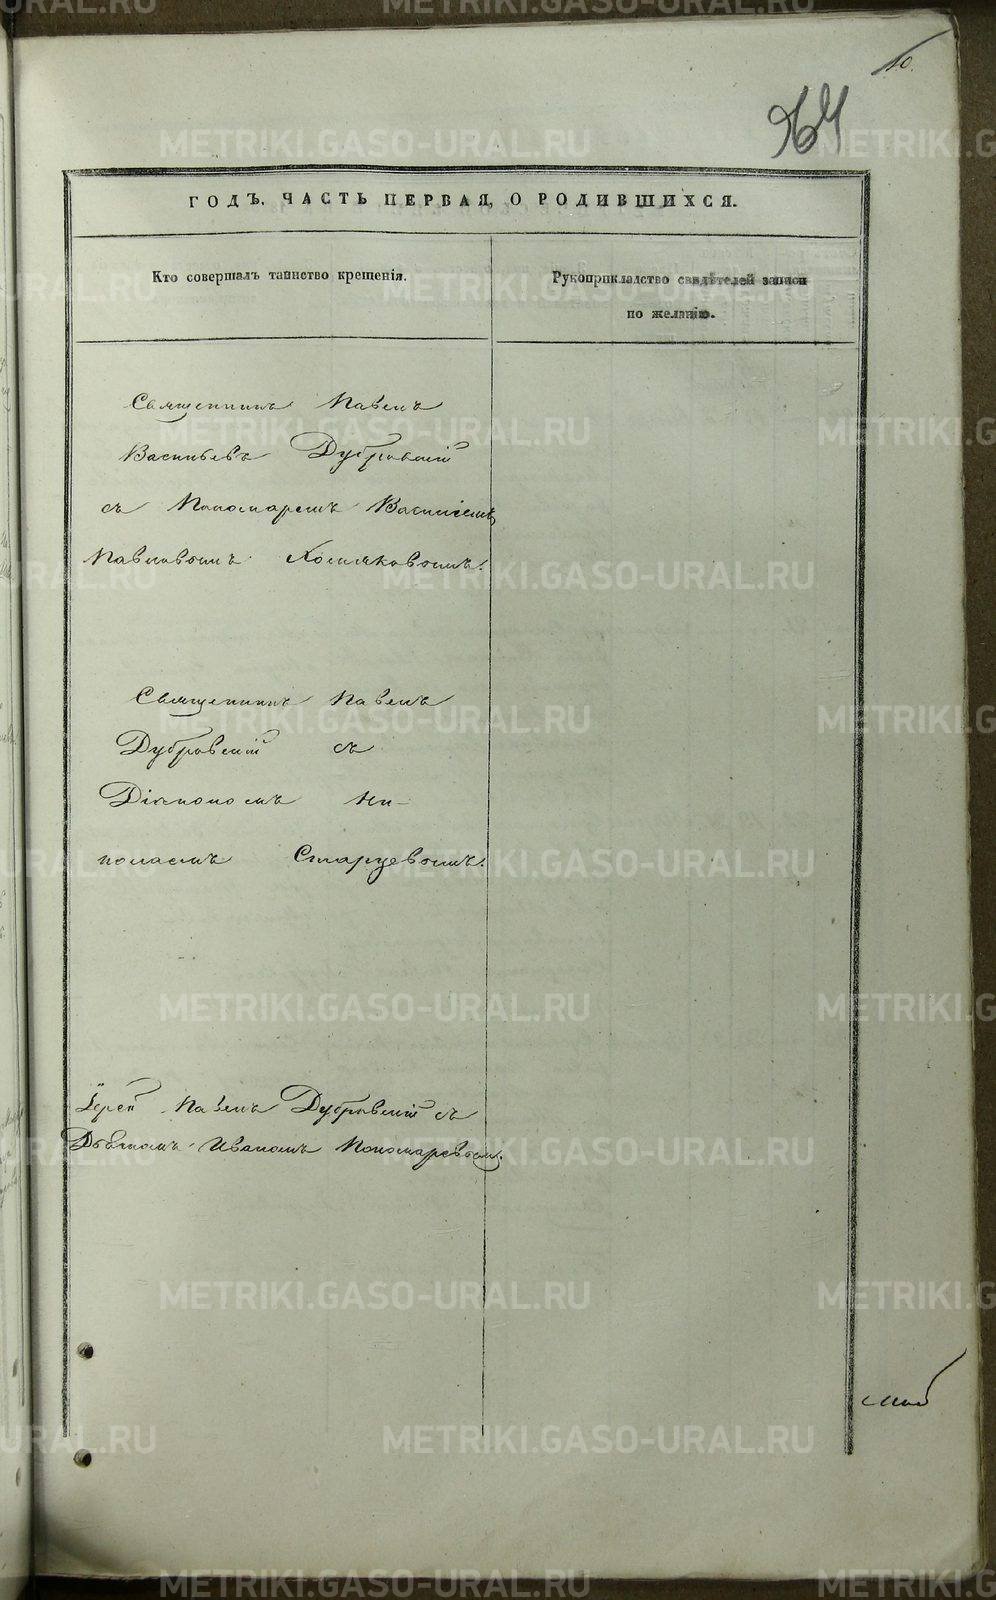 10.
264
ГОДЪ. ЧАСТЬ ПЕРВАЯ, О РОДИВШИХСЯ.
Кто совершалъ таинство крещенія.
Рукоприкладство свидѣтелей записи
по желанію.
Священникъ Павелъ
Васильевъ Дубровскій
съ Пономаремъ Василіемъ
Павловомъ Хомяковомъ.
Священникъ Павелъ
Дубровскій съ
Діякономъ Ни-
колаемъ Старцевомъ.
Іерей Павелъ Дубровскій съ
Дьячкомъ Иваномъ Пономаревымъ.
METRIKI.GASO-URAL.RU